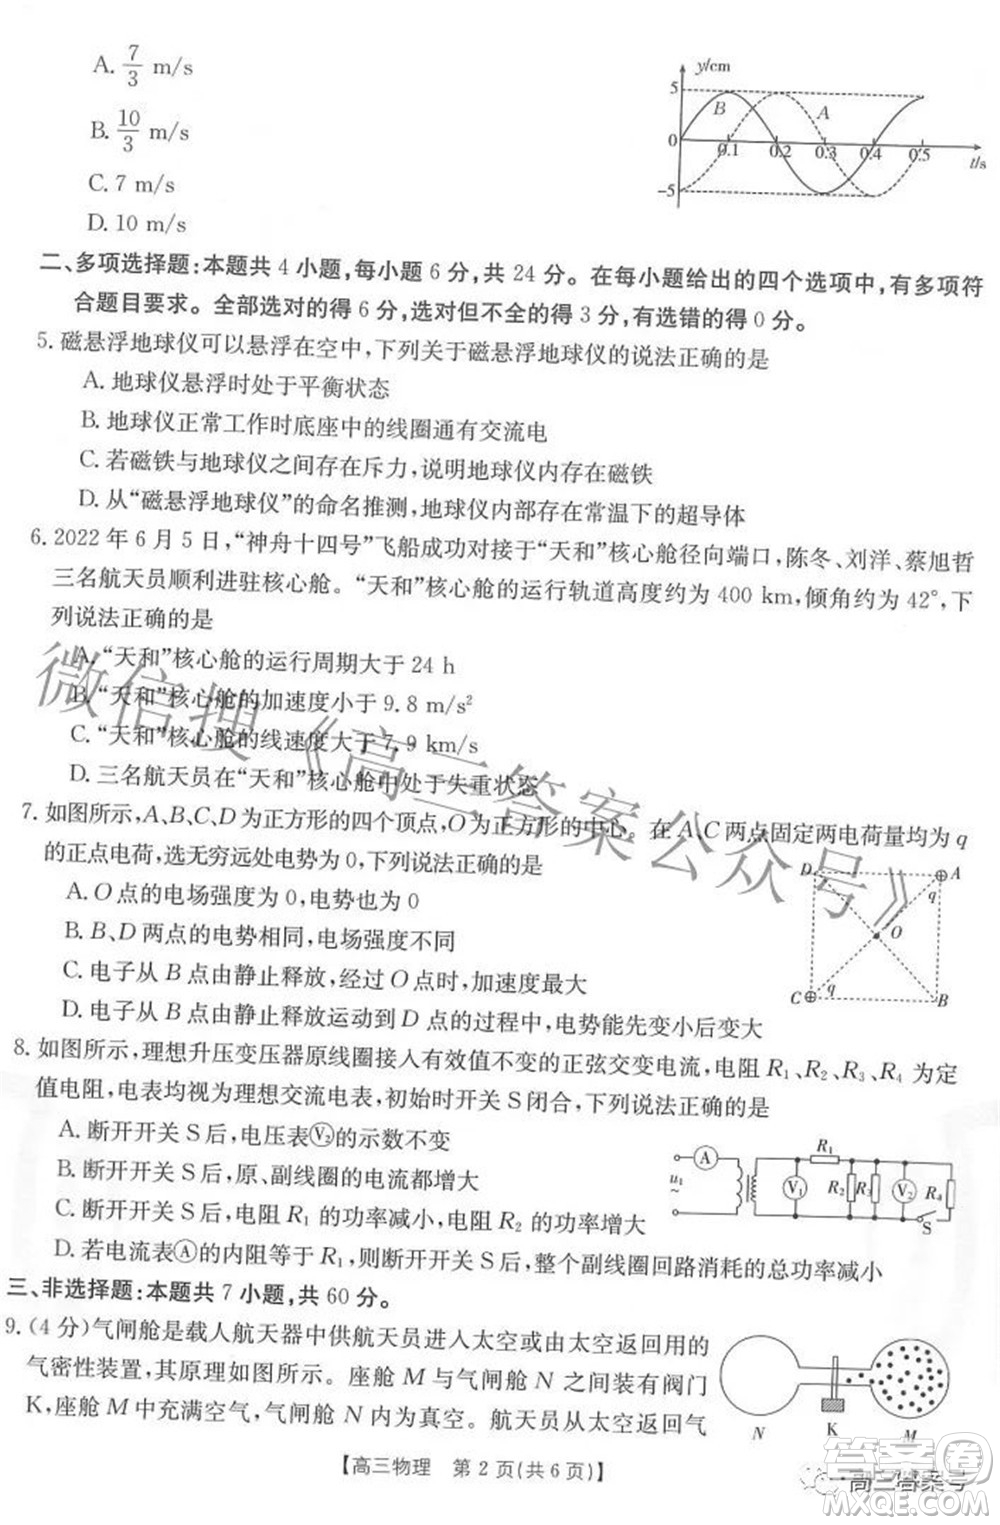 A. 7/3 m/s
B. 10/3 m/s
C. 7 m/s
D. 10 m/s
y/cm
5
B
A
0
0.1
0.2
0.3
0.4
0.5
t/s
-5
二、多项选择题:本题共 4 小题,每小题 6 分,共 24 分。在每小题给出的四个选项中,有多项符
合题目要求。全部选对的得 6 分,选对但不全的得 3 分,有选错的得 0 分。
5. 磁悬浮地球仪可以悬浮在空中,下列关于磁悬浮地球仪的说法正确的是
A. 地球仪悬浮时处于平衡状态
B. 地球仪正常工作时底座中的线圈通有交流电
C. 若磁铁与地球仪之间存在斥力,说明地球仪内存在磁铁
D. 从“磁悬浮地球仪”的命名推测,地球仪内部存在常温下的超导体
6. 2022 年 6 月 5 日,“神舟十四号”飞船成功对接于“天和”核心舱径向端口,陈冬、刘洋、蔡旭哲
三名航天员顺利进驻核心舱。“天和”核心舱的运行轨道高度约为 400 km,倾角约为 42°,下
列说法正确的是
A. “天和”核心舱的运行周期大于 24 h
B. “天和”核心舱的加速度小于 9.8 m/s²
C. “天和”核心舱的线速度大于 7.9 km/s
D. 三名航天员在“天和”核心舱中处于失重状态
7. 如图所示,A、B、C、D 为正方形的四个顶点,O 为正方形的中心。在 A、C 两点固定两电荷量均为 q
的正点电荷,选无穷远处电势为 0,下列说法正确的是
A. O 点的电场强度为 0,电势也为 0
B. B、D 两点的电势相同,电场强度不同
C. 电子从 B 点由静止释放,经过 O 点时,加速度最大
D. 电子从 B 点由静止释放运动到 D 点的过程中,电势能先变小后变大
D
A
q
O
C
q
B
8. 如图所示,理想升压变压器原线圈接入有效值不变的正弦交变电流,电阻 R₁、R₂、R₃、R₄ 为定
值电阻,电表均视为理想交流电表,初始时开关 S 闭合,下列说法正确的是
A. 断开开关 S 后,电压表Ⓥ₂的示数不变
B. 断开开关 S 后,原、副线圈的电流都增大
C. 断开开关 S 后,电阻 R₁ 的功率减小,电阻 R₂ 的功率增大
D. 若电流表Ⓐ的内阻等于 R₁,则断开开关 S 后,整个副线圈回路消耗的总功率减小
A
u₁
~
R₁
V₁
R₂
R₃
V₂
R₄
S
三、非选择题:本题共 7 小题,共 60 分。
9. (4 分)气闸舱是载人航天器中供航天员进入太空或由太空返回用的
气密性装置,其原理如图所示。座舱 M 与气闸舱 N 之间装有阀门
K,座舱 M 中充满空气,气闸舱 N 内为真空。航天员从太空返回气
N
K
M
【高三物理 第 2 页(共 6 页)】
微信搜《高三答案公众号》
高三答案号
答案圈
MXQE.COM